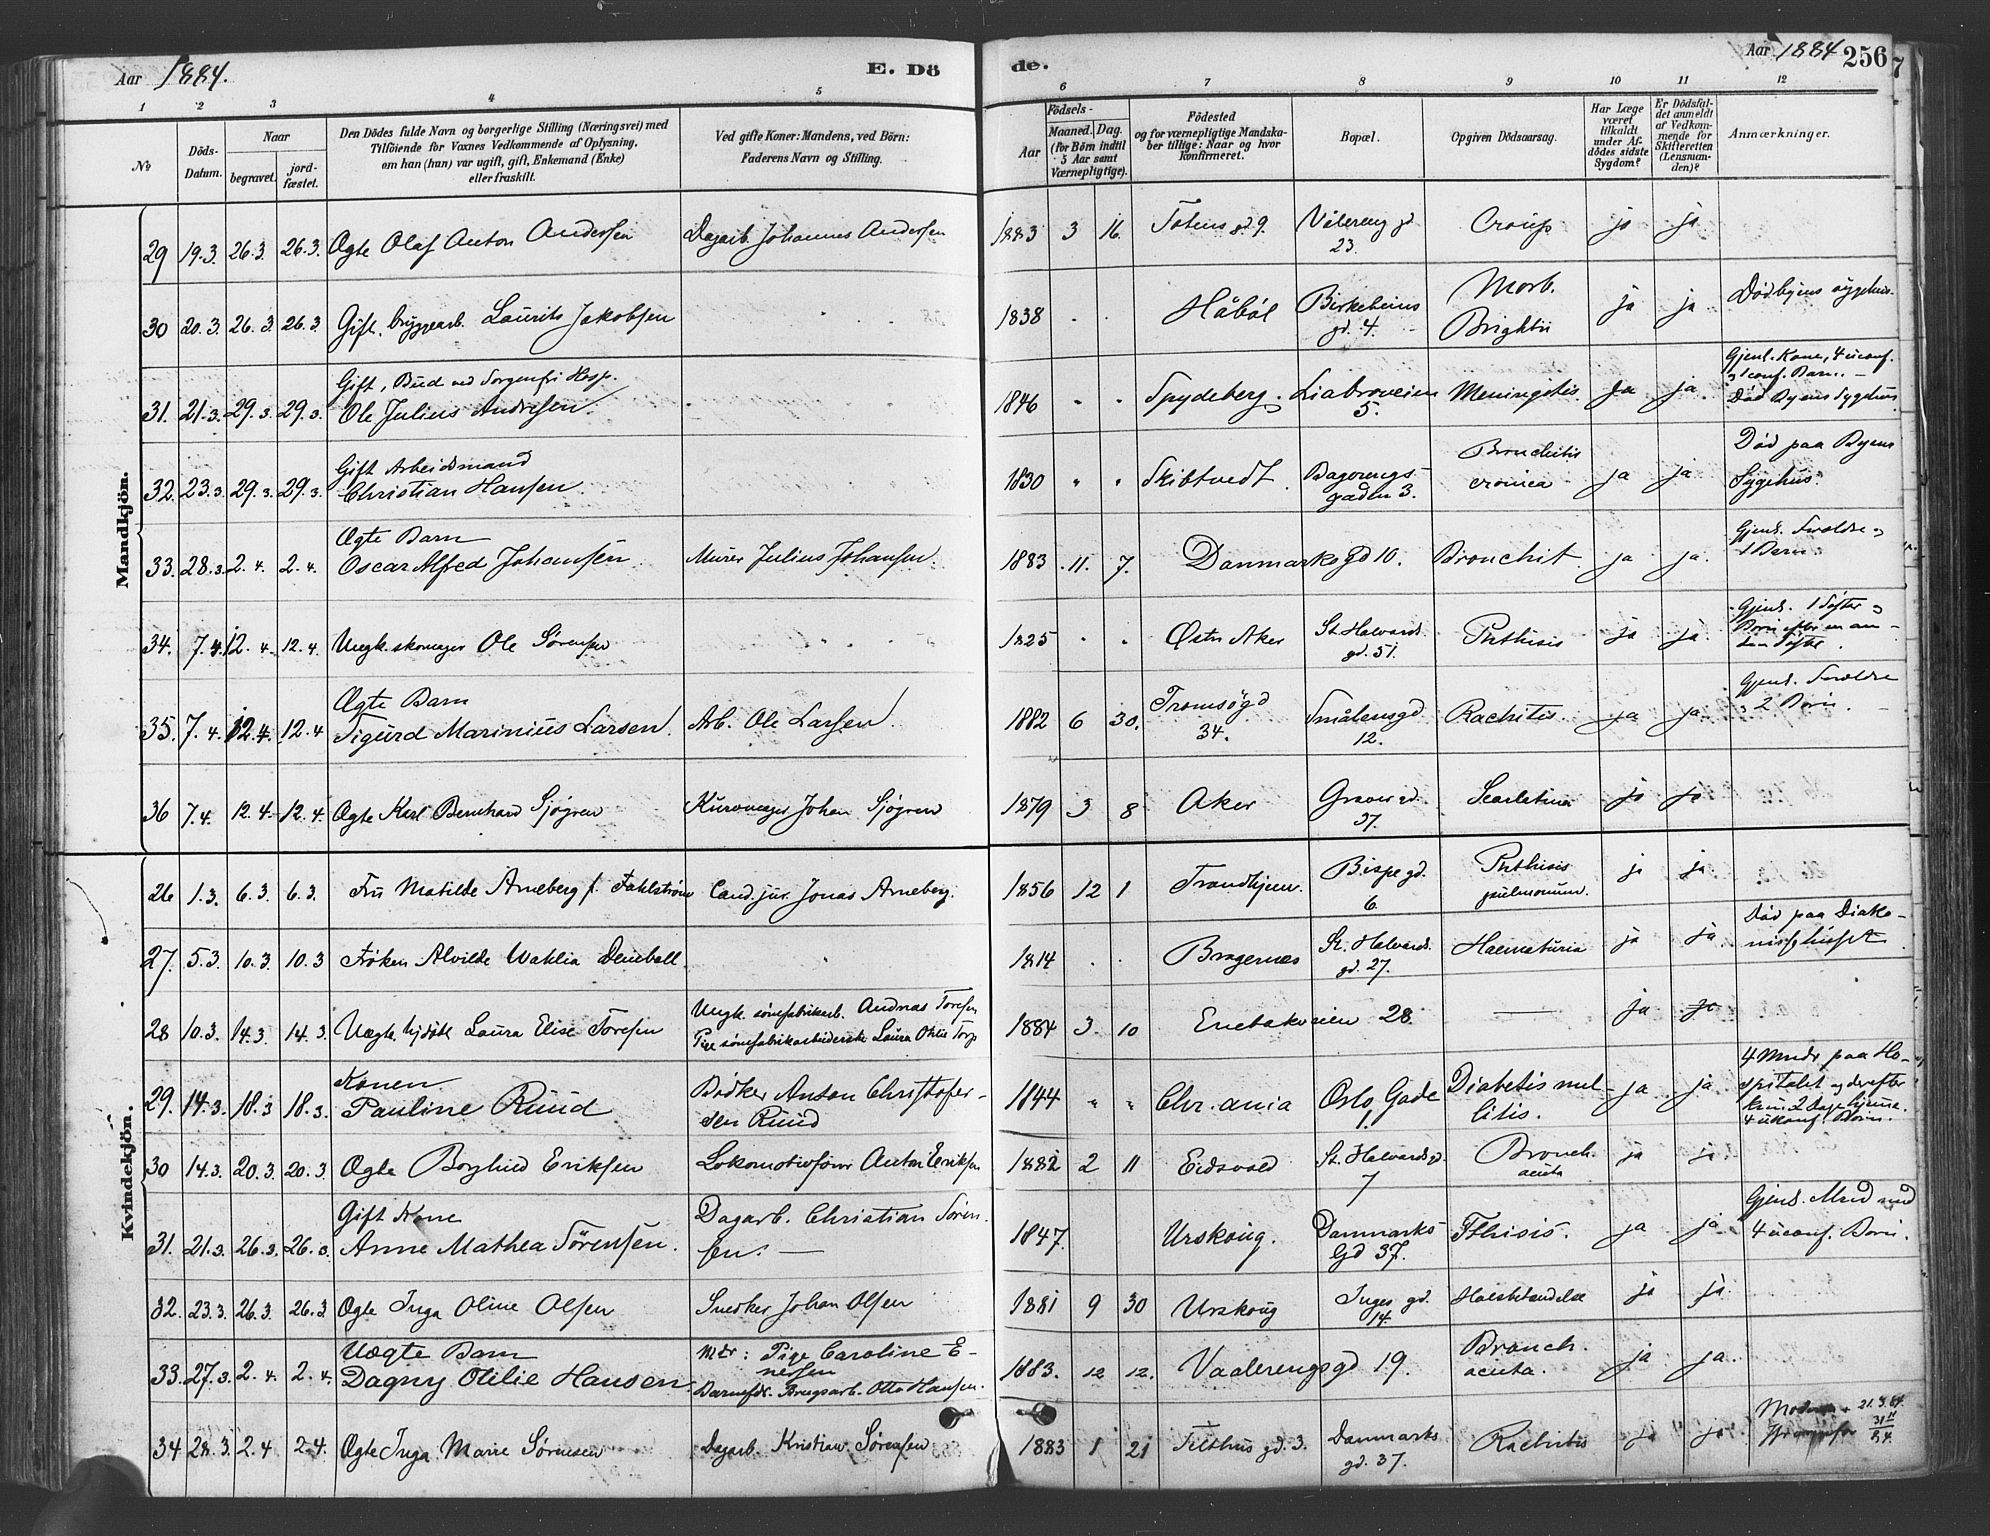 Aar 1884. E. Dö de. Aar 1884 256
1 2 3 4 5 6 7 8 9 10 11 12
No
Döds-Datum.
Naar
begravet.
jord-fæstet.
Den Dödes fulde Navn og borgerlige Stilling (Næringsvei) med
Tilföiende for Voxnes Vedkommende af Oplysning,
om han (hun) var ugift, gift, Enkemand (Enke)
eller fraskilt.
Ved gifte Koner: Mandens, ved Börn:
Faderens Navn og Stilling.
Födsels-
Aar
Maaned. Dag.
(for Börn indtil
5 Aar samt
Værnepligtige).
Födested
og for værnepligtige Mandska-
ber tillige: Naar og hvor
konfirmeret.
Bopæl.
Opgiven Dödsaarsag.
Har Læge
været
tilkaldt
under Af-
dödes sidste
Sygdom?
Er Dödsfal-
det anmeldt
af Vedkom-
mende for
Skifteretten
(Lensman-
den)?
Anmærkninger.
Mandkjön.
29 19.3. 26.3. 26.3. Ægte Olaf Anton Andersen Dagarb. Johannes Andersen 1883 3 16. Totens gd 9. Vålereng gd 23. Croup ja ja
30 20.3. 26.3. 26.3. Gift. bryggearb. Laurits Jakobsen 1838 Håböl Birkebeins gd. 4. Morb. Brightii ja ja Död byens sygehus.
31. 21.3. 29.3. 29.3. Gift, Bud ved Sorgenfri Hosp. Ole Julius Andresen 1846 " " Spydeberg. Liabroveien 5. Meningitis. Ja ja. Gjenl. Kone, 4 uconf. og 1 conf. Barn. Död Byens Sygehus
32. 23.3. 29.3. 29.3. Gift Arbeidsmand Christian Hansen. 1830 " " Skibtvedt. Dagvrengs gaden 3. Bronchitis cronica ja ja Död paa Byens Sygehus
33. 28.3. 2.4. 2.4. Ægte Barn Oscar Alfred Johansen Murer Julius Johansen. 1883 11. 7. Danmarks gd 10. Bronchit. ja ja. Gjenl. Forældre og 1 Barn.
34. 7.4. 12.4. 12.4. Ungk. skomager Ole Sörensen 1825 " " Östre Aker St. Halvards gd. 51. Phthisis ja ja Gjenl. 1 Söster og Börn efter en anden Söster.
35. 7.4. 12.4. 12.4 Ægte Barn Sigurd Marinius Larsen. Arb. Ole Larsen. 1882 6 30. Tromsögd 34. Smålensgd 12. Rachitis. ja ja. Gjenl. Forældre og 2 Börn.
36 7.4. 12.4. 12.4. Ægte Karl Bernhard Sjögren Kurvmager Johan Sjögren 1879 3 8 Aker Graver gd. 37. Scarlatina ja ja
Kvindekjön.
26 1.3. 6.3 6.3. Fru Matilde Arneberg f. Fahlström Cand. jur. Jonas Arneberg. 1856 12 1 Trondhjem. Bispe gd. 6. Phthisis pulmonum. ja ja
27. 5.3. 10.3. 10.3 Fröken Alvilde Wahlia 1814 Bragernæs St. Halvards. gd. 27. Haematuria ja ja Död paa Diako-nissehuset
28 10.3. 14.3. 14.3. Uægte. hjdöbt Laura Elise Toresen Ungk. sömfabrikarb. Andreas Toresen Pige sömfabrikarbeiderske Laura 1884 3. 10 Enebakveien 28 — ja ja
29. 14.3. 18.3 18.3. Konen Pauline Ruud Bödker Anton Christofer-sen Ruud 1844 " " Chr.ania Oslo Gade 1. Diabetis mel-litis. ja ja 4 Mndr paa Ho-spitalet og derefter kun 2 Dage hjemme. 4 ukonf. Börn.
30 14.3. 20.3. 20.3 Ægte Borghild Eriksen Lokomotivförer Anton Eriksen 1882 2 11 Eidsvold St. Halvardsgd. 7 Bronch. acuta ja ja
31. 21.3. 26.3. 26.3. Gift Kone Anne Mathea Sörensen. Dagarb. Christian Sören-sen. — 1847. Urskoug. Danmarks Gd 37. Fthisis. ja ja Gjenl. Mnd med 4 uconf. Börn.
32. 23.3. 26.3. 26.3 Ægte Inga Oline Olsen Snedker Johan Olsen 1881 9 30 Urskoug Inges gd. 14. Halsbetændelse ja ja.
33. 27.3. 2.4. 2.4. Uægte Barn Dagny Otilie Hansen. Mdr: Pige Caroline E-nersen Barnefdr. Brugsarb. Otto Hansen. 1883. 12 12. Vaalerengsgd 19. Bronch. acuta. ja ja.
34 28.3. 2.4 2.4. Ægte Inga Marie Sörensen Dagarb. Kristian Sörensen 1883 1 21 Felthus gd. 3. Danmarks gd. 37. Rachitis ja ja 21.3.84.